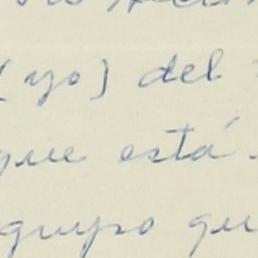 (yo) del
que está
grupo qu